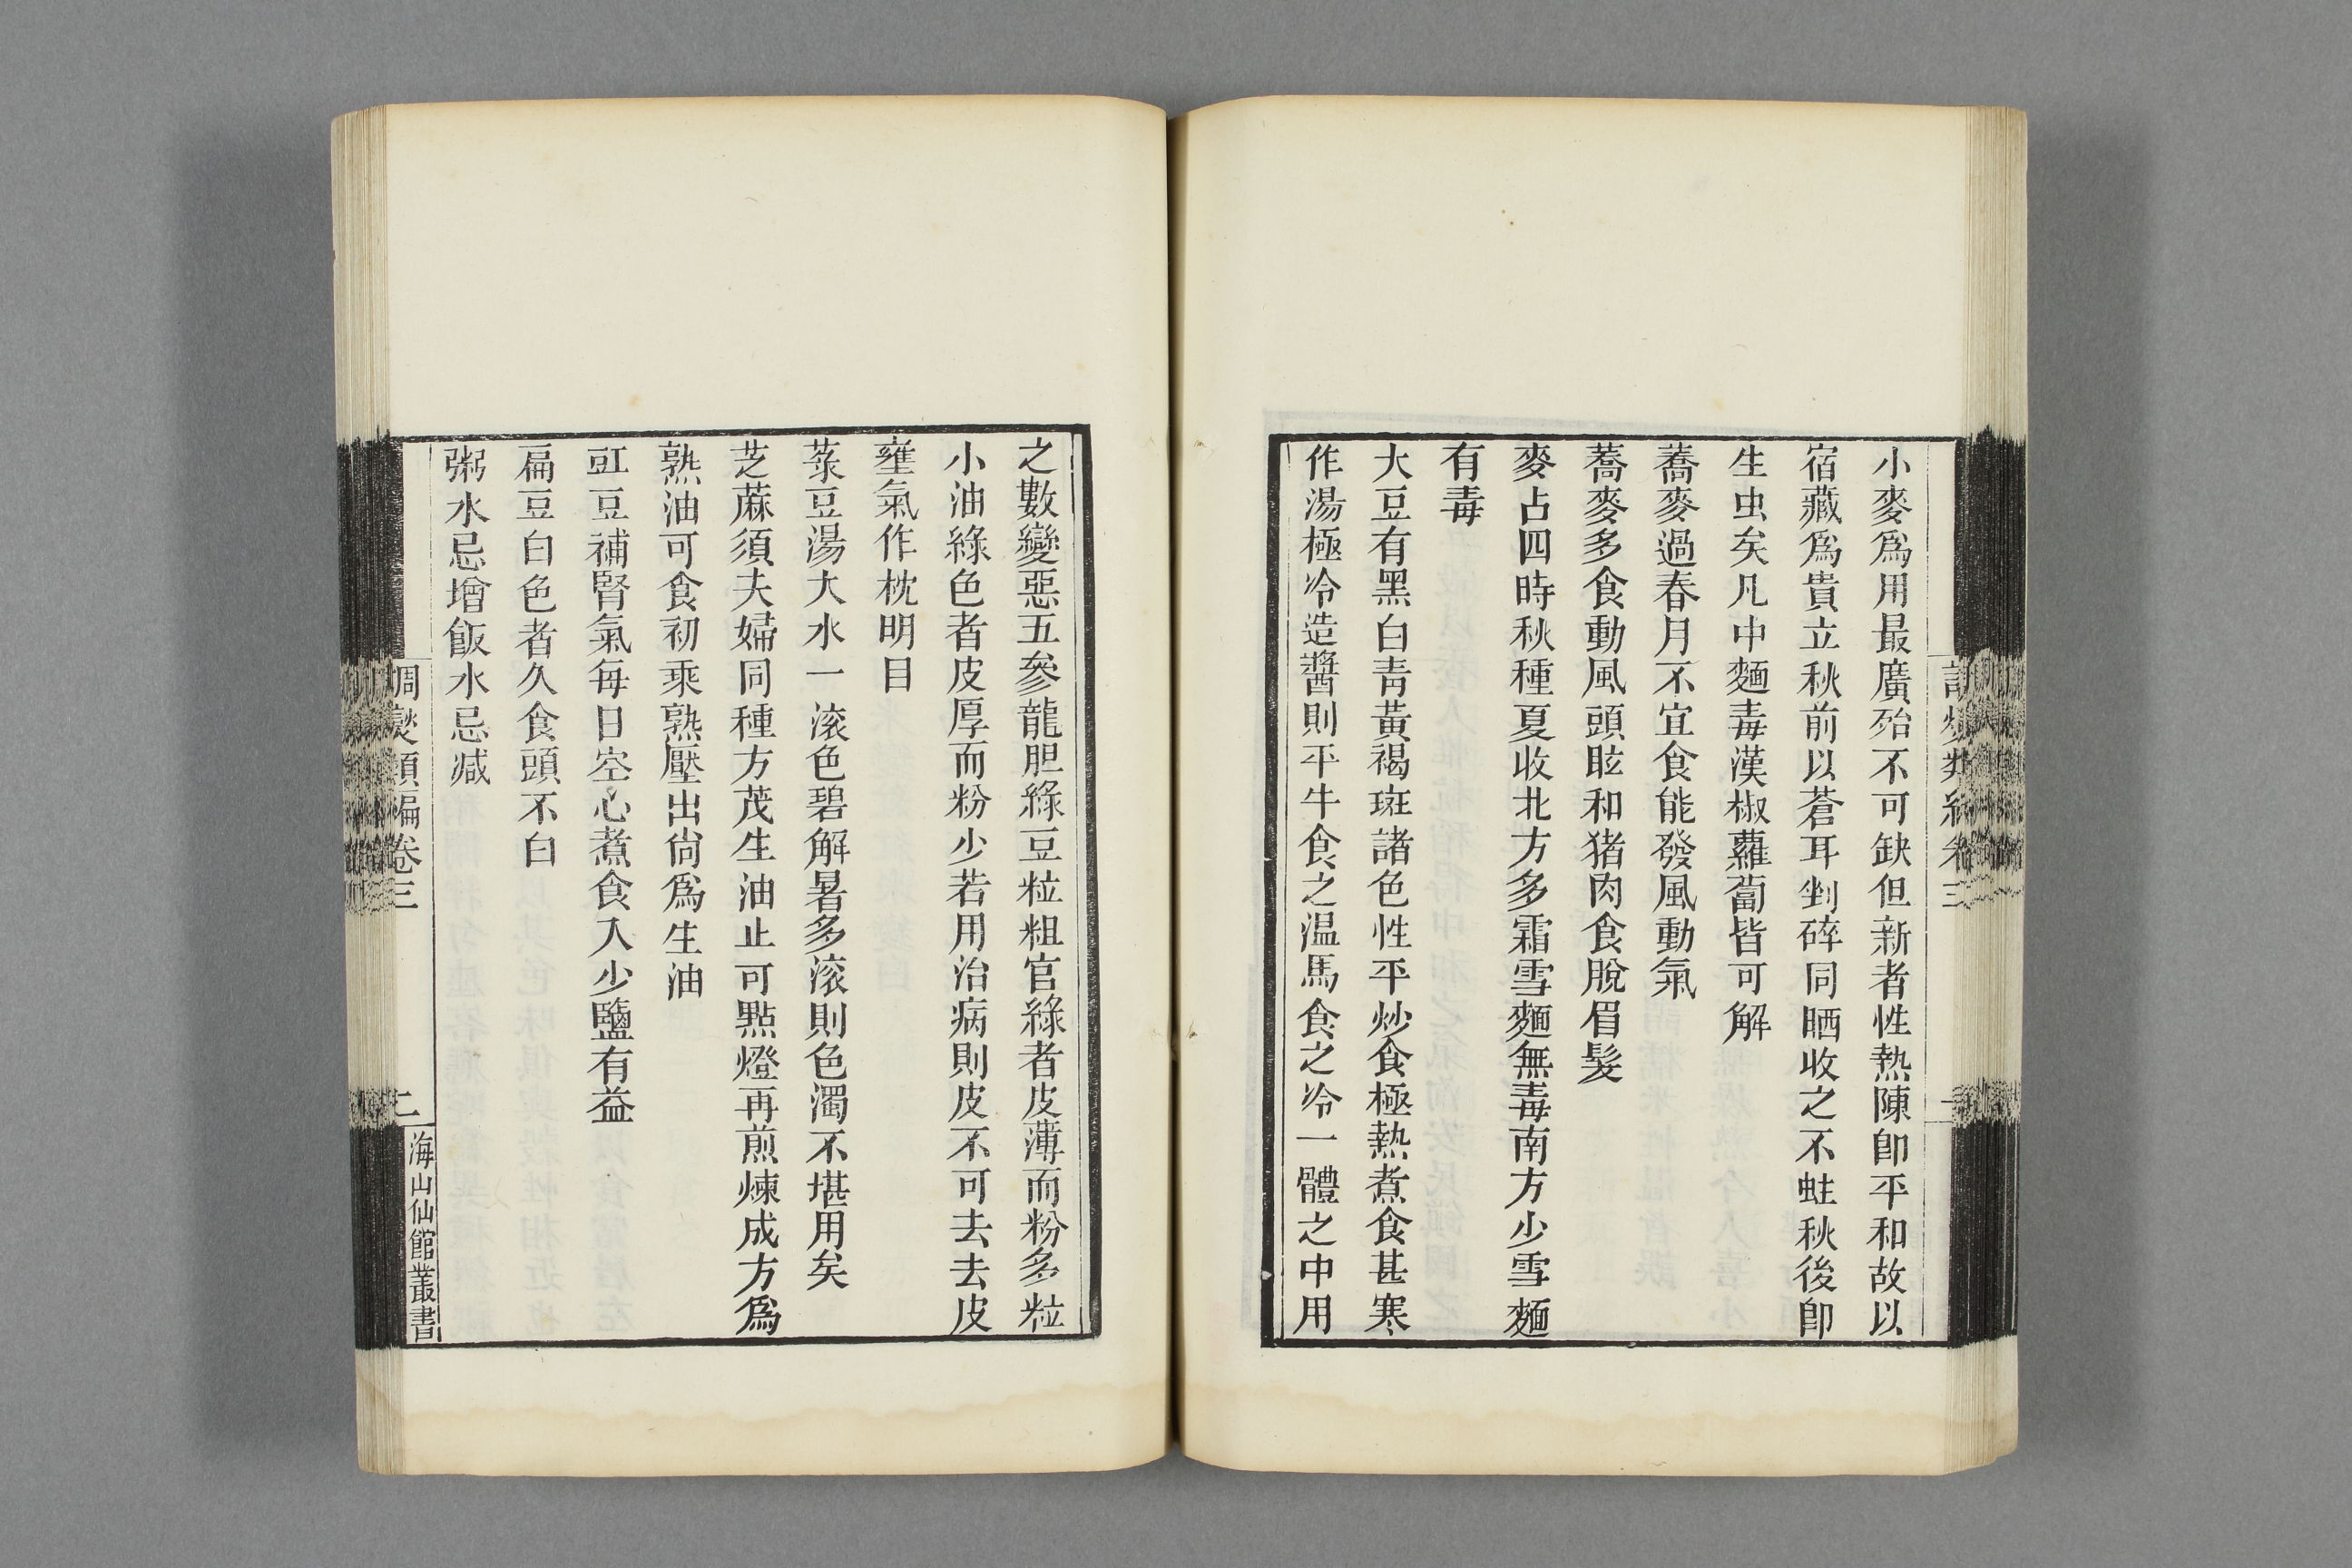 小麥爲用最廣殆不可缺但新者性熱陳卽平和故以
宿藏爲貴立秋前以蒼耳剉碎同晒收之不蛀秋後卽
生虫矣凡中麵毒漢椒蘿蔔皆可解
蕎麥過春月不宜食能發風動氣
蕎麥多食動風頭眩和猪肉食脫眉髮
麥占四時秋種夏收北方多霜雪麵無毒南方少雪麵
有毒
大豆有黑白青黃褐斑諸色性平炒食極熱煮食甚寒
作湯極冷造醬則平牛食之温馬食之冷一體之中用
之數變惡五參龍胆綠豆粒粗官綠者皮薄而粉多粒
小油綠色者皮厚而粉少若用治病則皮不可去去皮
壅氣作枕明目
菉豆湯大水一滚色碧解暑多滚則色濁不堪用矣
芝蔴須夫婦同種方茂生油止可點燈再煎煉成方爲
熟油可食初乘熟壓出尙爲生油
豇豆補腎氣每日空心煮食入少鹽有益
扁豆白色者久食頭不白
粥水忌增飯水忌减
調燮類編卷三
二
海山仙館叢書